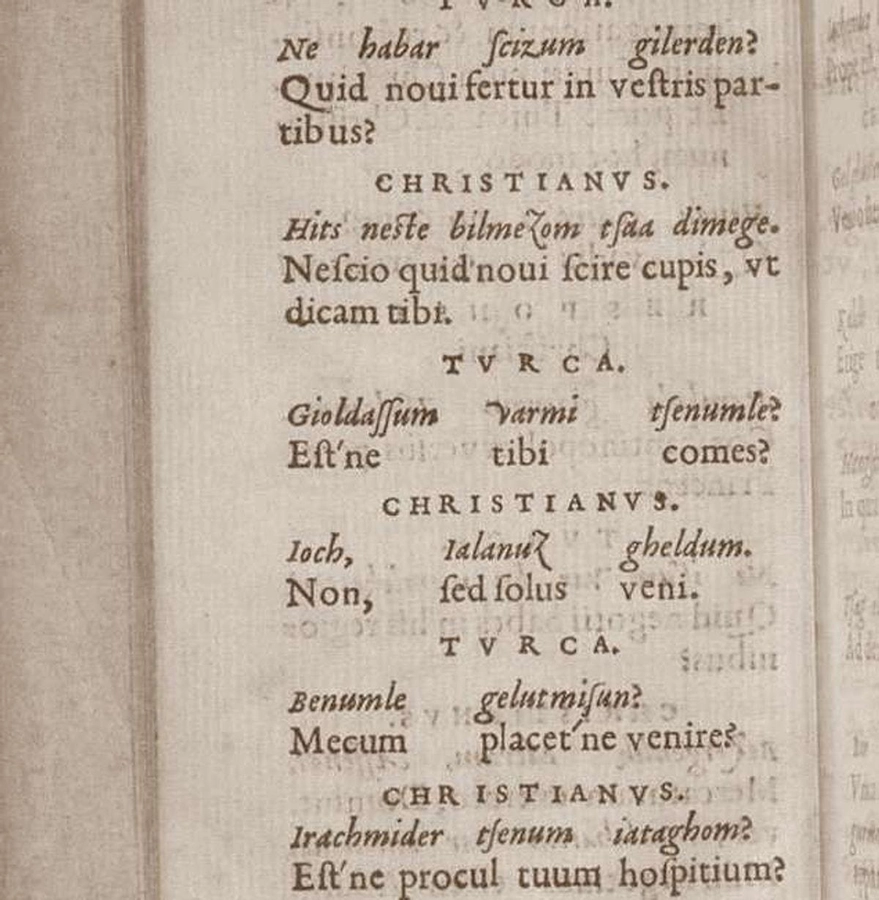 Ne habar ſcizum gilerden?
Quid noui fertur in veſtris par-
tibus?
CHRISTIANVS.
Hits neſte bilmeZom tſaa dimege.
Neſcio quid noui ſcire cupis, vt
dicam tibi.
TVRCA.
Gioldaſſum varmi tſenumle?
Eſt'ne tibi comes?
CHRISTIANVS.
Ioch, IalanuZ gheldum.
Non, ſed ſolus veni.
TVRCA.
Benumle gelutmiſun?
Mecum placet'ne venire?
CHRISTIANVS.
Irachmider tſenum iataghom?
Eſt'ne procul tuum hoſpitium?